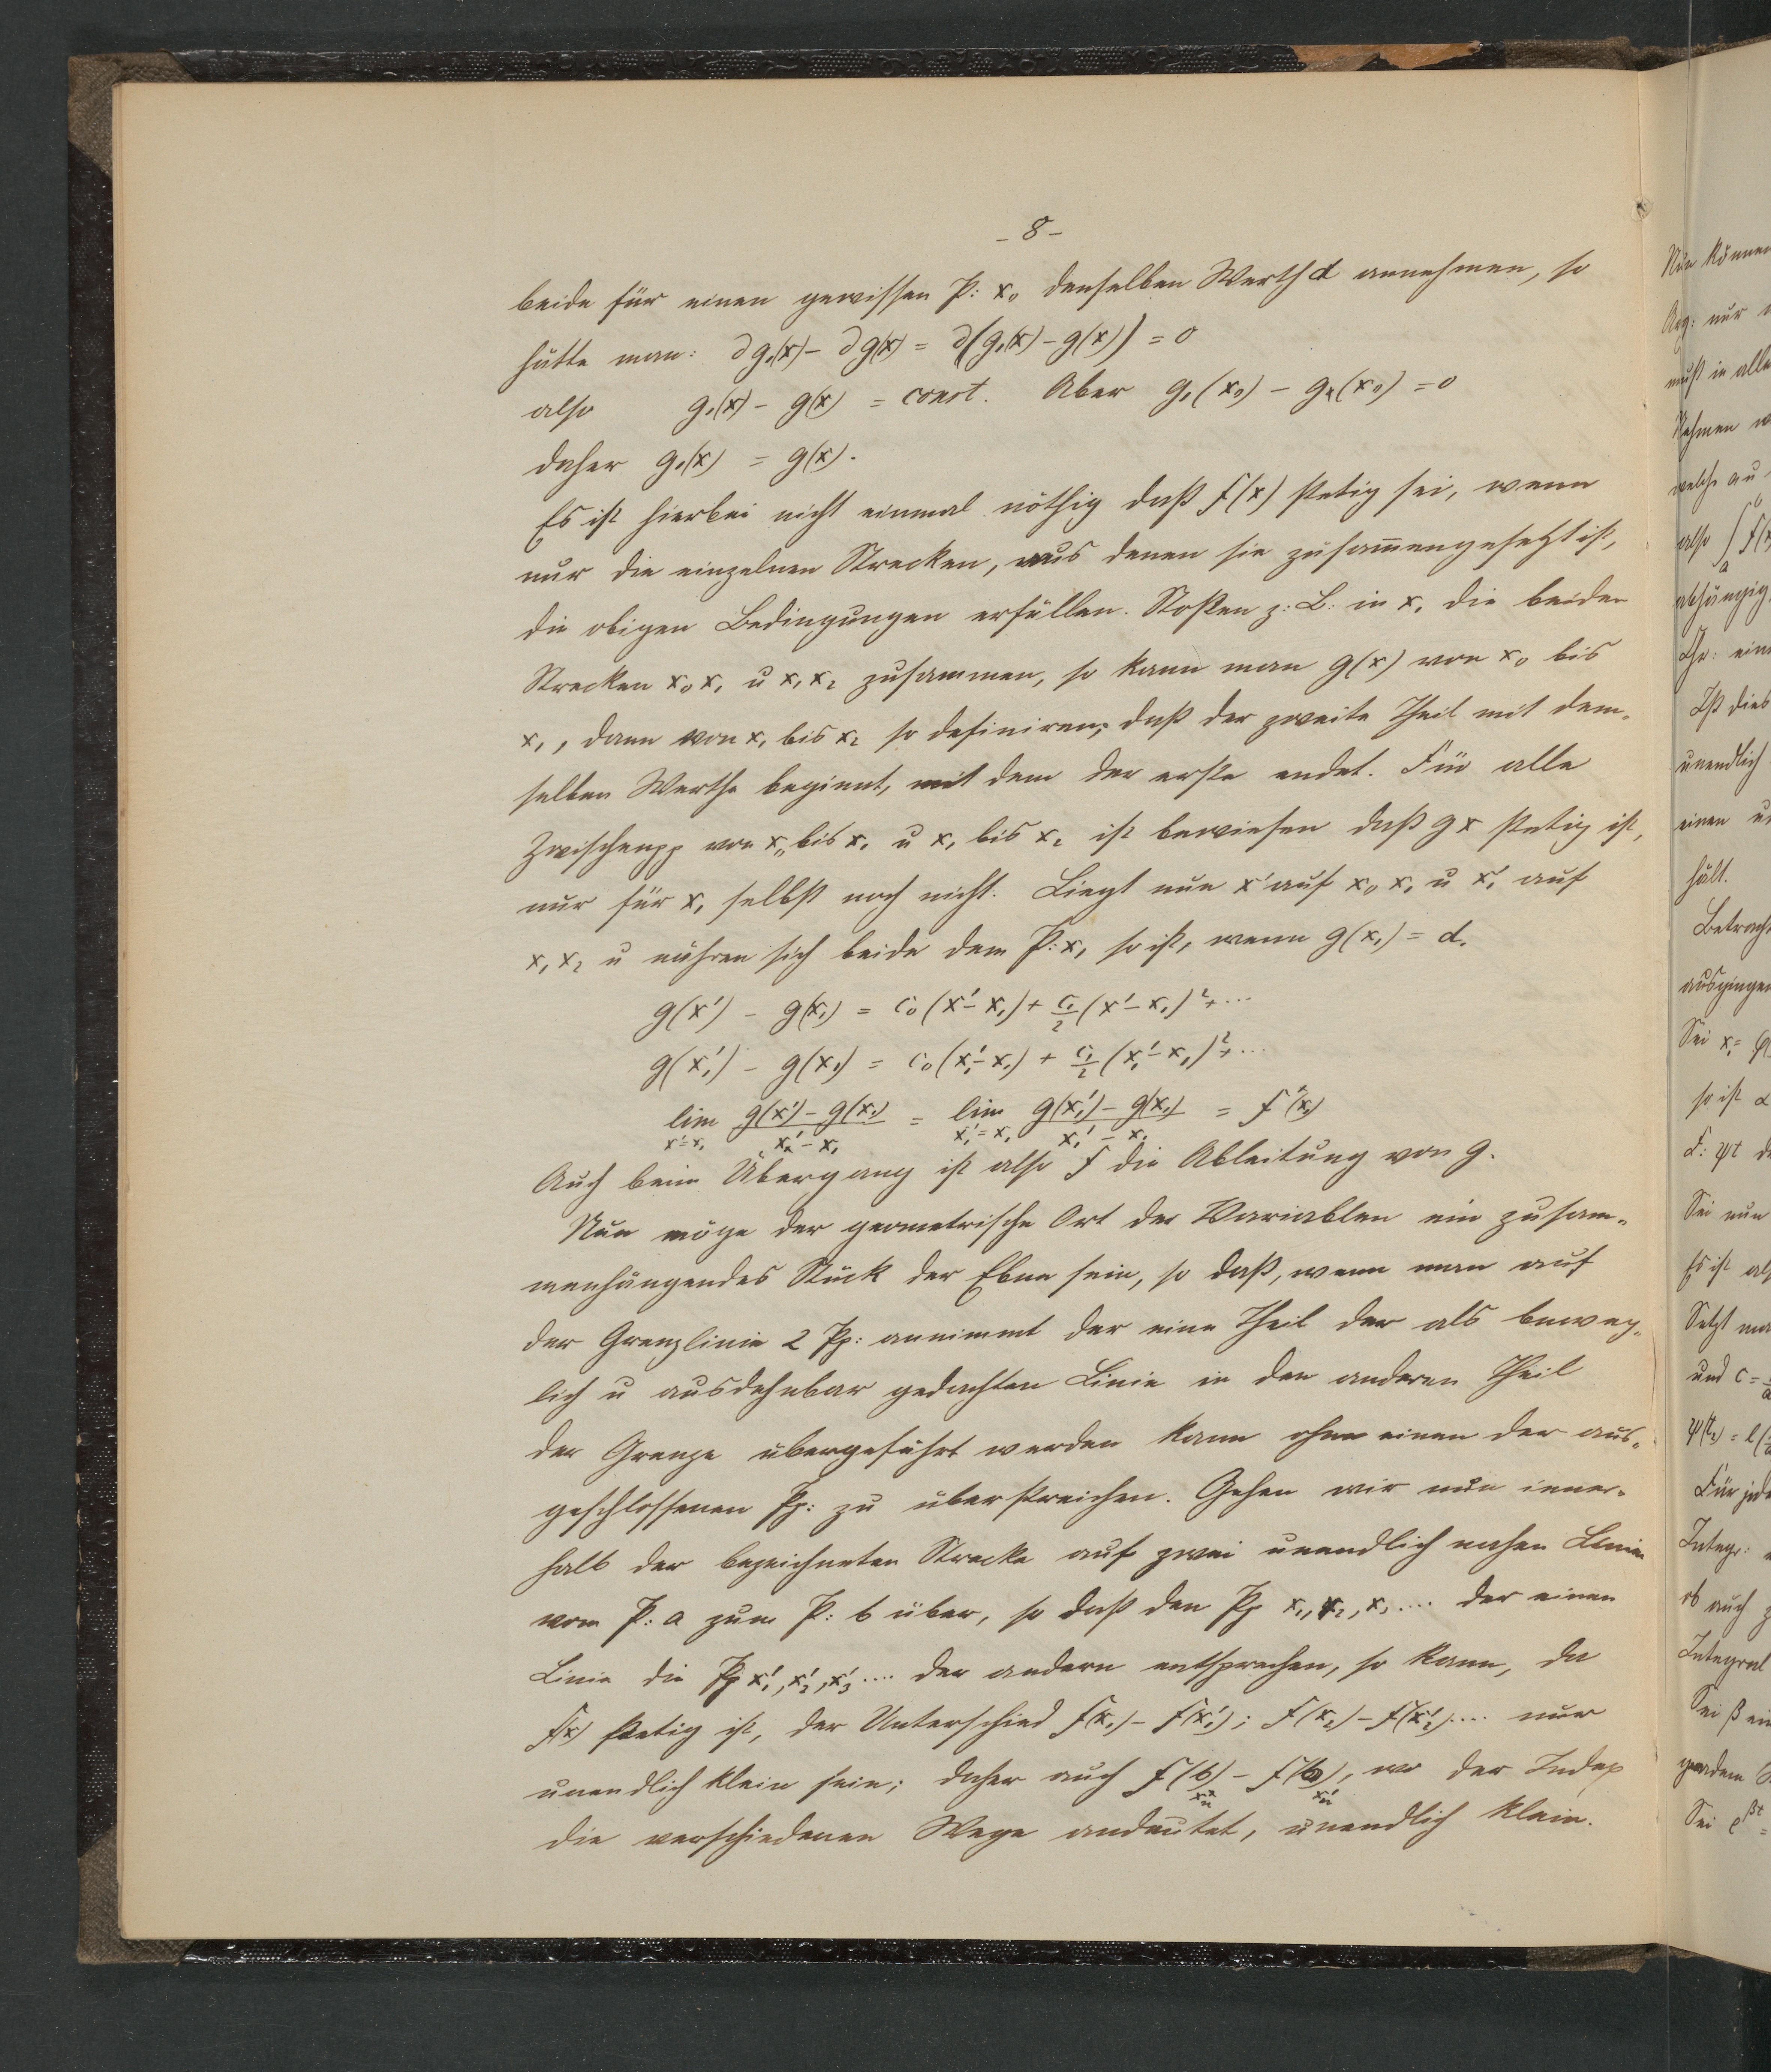 - 8 -
beide für einen gewissen P: x₀ denselben Werth d annehmen, so
hätte man: ∂g₁(x) - ∂g(x) = ∂(g₁(x) - g(x)) = 0
also g₁(x) - g(x) = const. Aber g₁(x₀) - g(x₀) = 0
daher g₁(x) = g(x).
Es ist hierbei nicht einmal nöthig daß f(x) stetig sei, wenn
nur die einzelnen Strecken, aus denen sie zusam̅engesetzt ist,
die obigen Bedingungen erfüllen. Stoßen z: B: in x₁ die beiden
Strecken x₀x₁ u x₁x₂ zusammen, so kann man g(x) von x₀ bis
x₁, dann von x₁ bis x₂ so definiren, daß der zweite Theil mit dem-
selben Werthe beginnt, mit dem der erste endet. Für alle
Zwischenpp von x₀ bis x₁ u x₁ bis x₂ ist bewiesen daß gx stetig ist,
nur für x₁ selbst noch nicht. Liegt nun x' auf x₀x₁ u x₁' auf
x₁x₂ u nähren sich beide dem P: x₁ so ist, wenn g(x₁) = d₁
g(x') - g(x₁) = c₀(x' - x₁) + c₁/2 (x' - x₁)² + ...
g(x₁') - g(x₁) = c₀(x₁' - x₁) + c₁/2 (x₁' - x₁)² + ...
lim x'=x₁ g(x') - g(x₁) / x' - x₁ = lim x₁'=x₁ g(x₁') - g(x₁) / x₁' - x₁ = f(x₁)
Auch beim Übergang ist also f die Ableitung von g.
Nun möge der geometrische Ort der Variablen ein zusam-
menhängendes Stück der Ebne sein, so daß, wenn man auf
der Grenzlinie 2 Pp: annimmt der eine Theil der als beweg-
lich u ausdehnbar gedachten Linie in den anderen Theil
der Grenze übergeführt werden kann ohne einen der aus-
geschlossenen Pp: zu überstreichen. Gehen wir nun inner-
halb der bezeichneten Strecke auf zwei unendlich nahen Linien
vom P: a zum P: b über, so daß den Pp x₁, x₂, x₃ .... der einen
Linie die Pp x₁', x₂', x₃' .... der andern entsprechen, so kann, da
f(x) stetig ist, der Unterschied f(x₁) - f(x₁'); f(x₂) - f(x₂') .... nur
unendlich klein sein; daher auch f(b) - f(b), wo der Index
die verschiedenen Wege andeutet, unendlich klein.